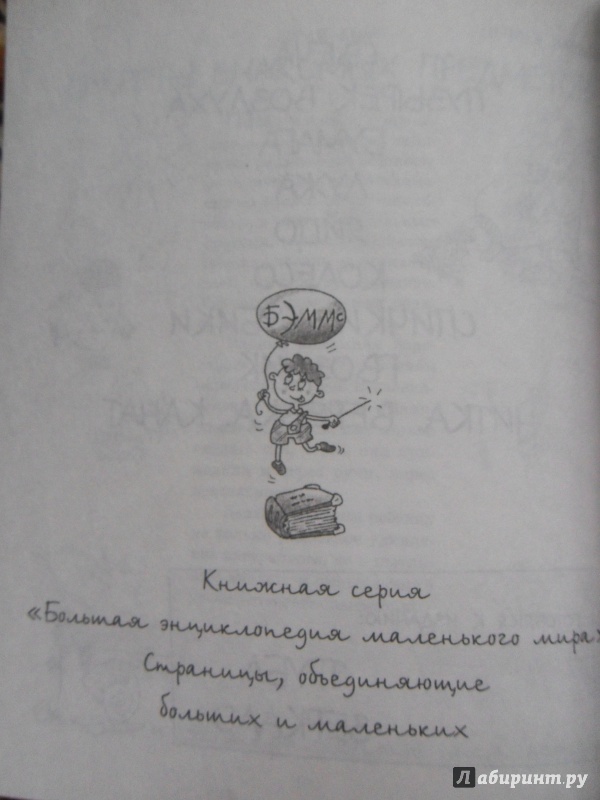 БЭММс
Книжная серия
«Большая энциклопедия маленького мира»
Страницы, объединяющие
больших и маленьких
Лабиринт.ру